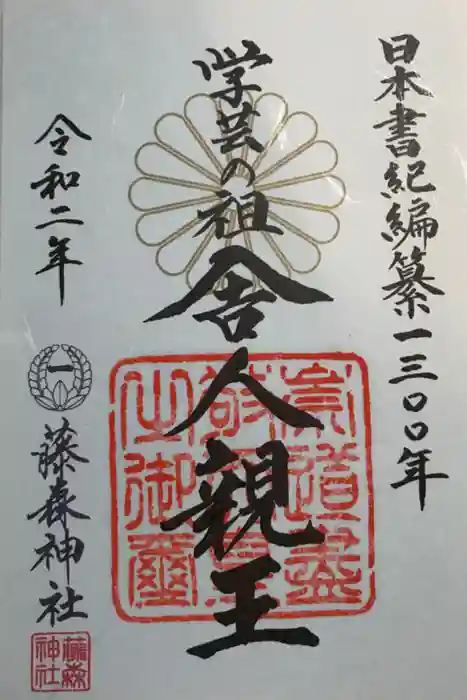 日本書紀編纂一三〇〇年
学芸の祖
舎人親王
崇道盡
之御璽
令和二年
一
藤森神社
藤森
神社